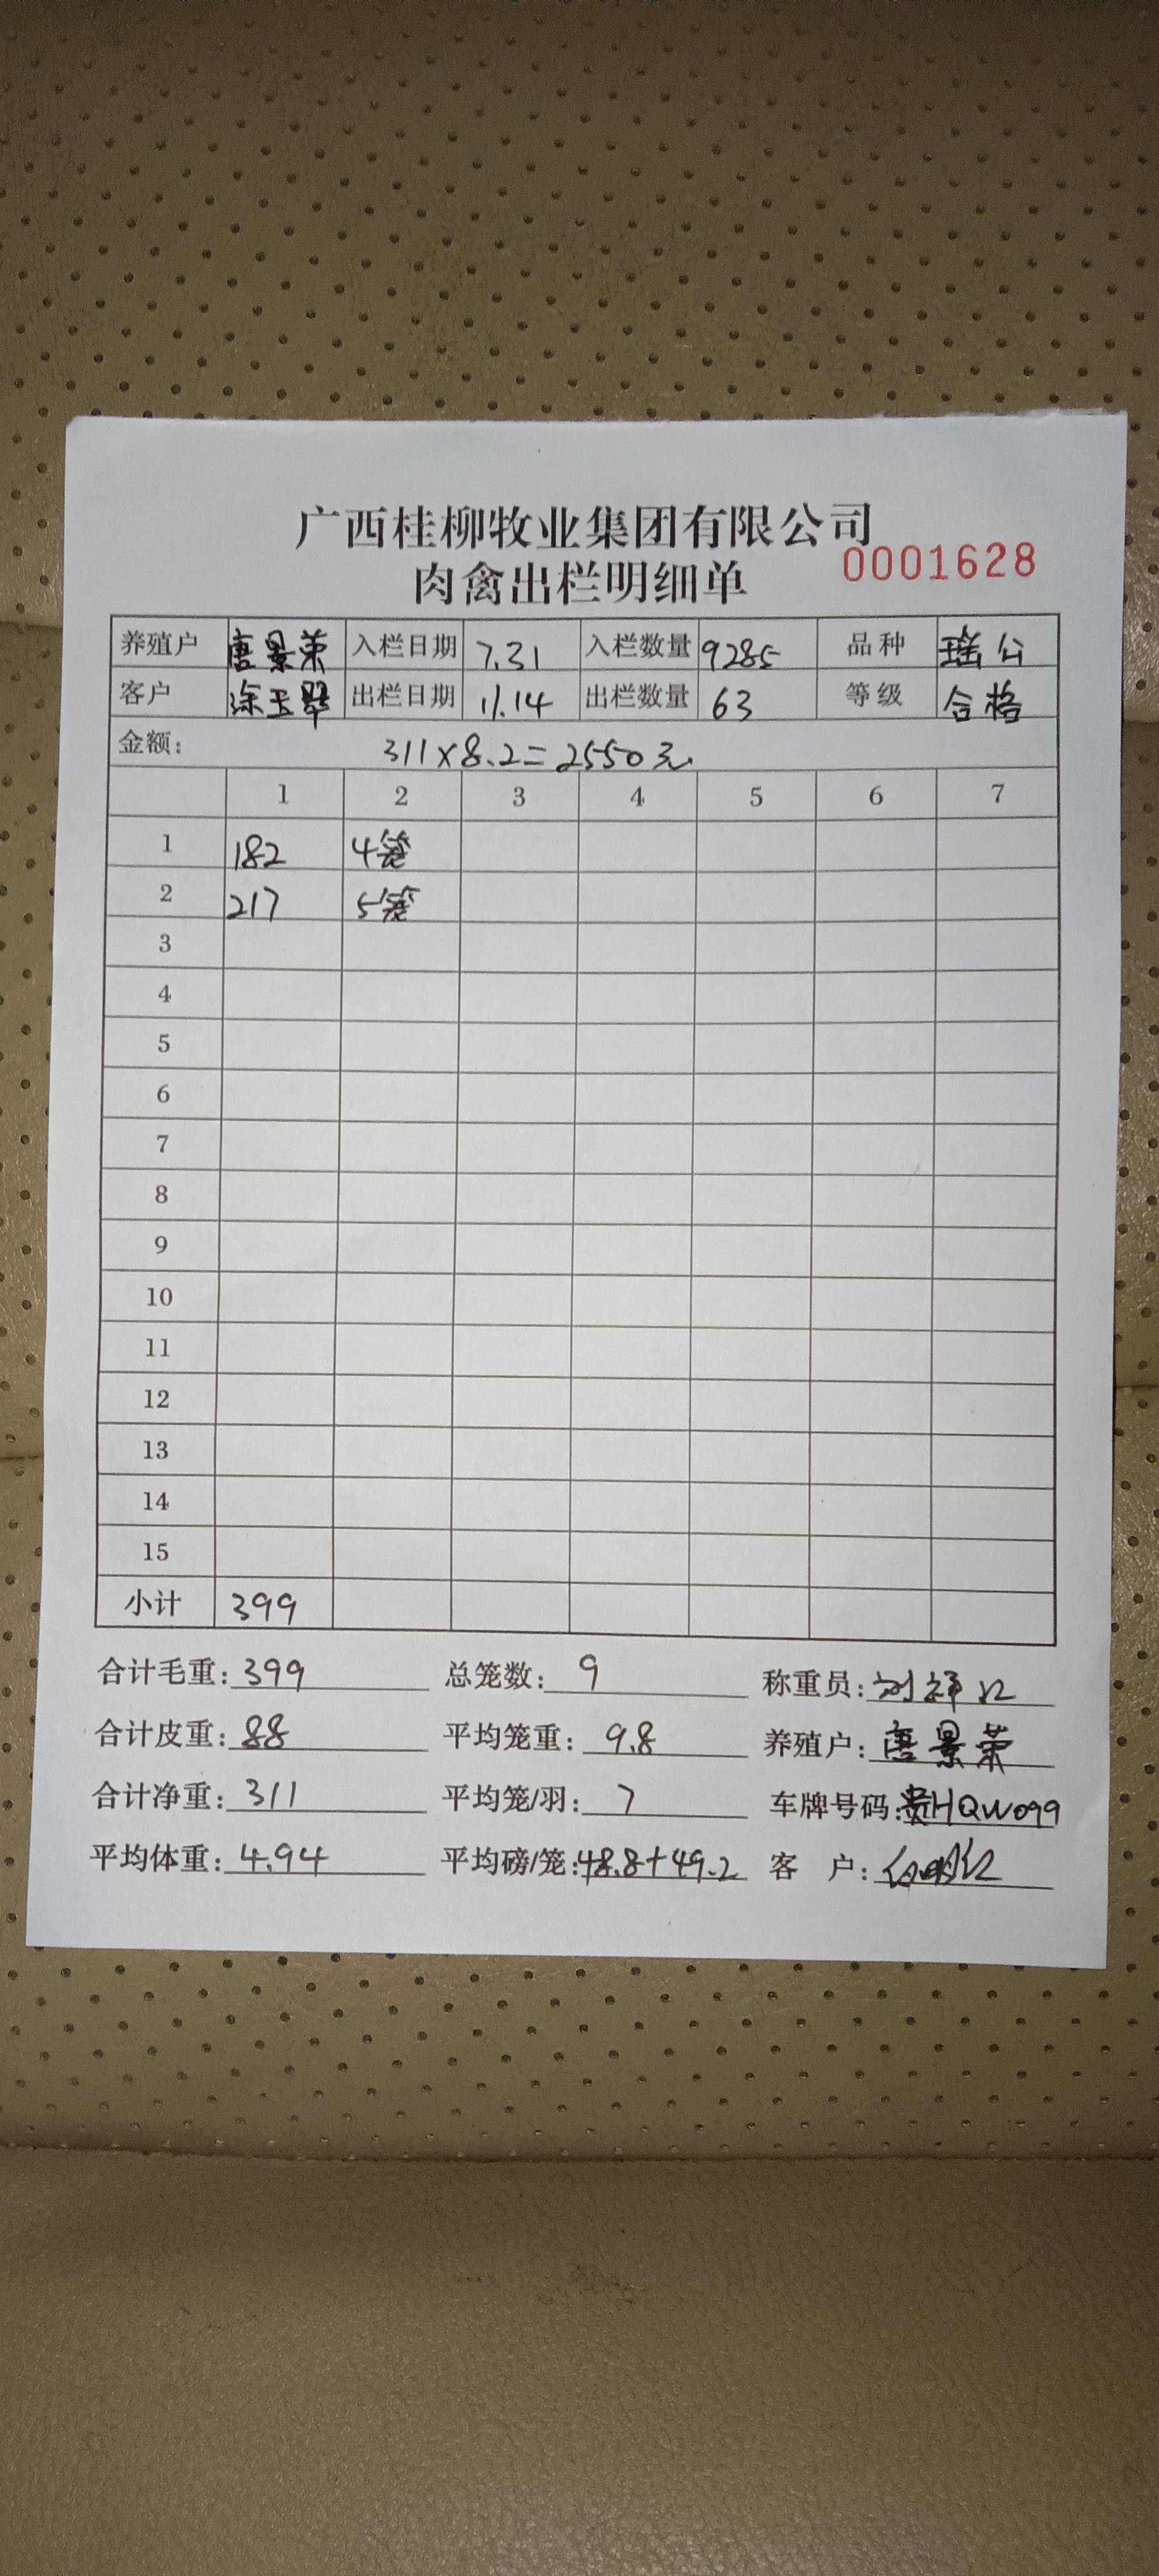 广西桂柳牧业集团有限公司
0001628
肉禽出栏明细单
养殖户 唐景荣 入栏日期 7.31 入栏数量 9285 品种 瑶公
客户 涂玉翠 出栏日期 11.14 出栏数量 63 等级 合格
金额: 311×8.2=2550元
1 2 3 4 5 6 7
1 182 4笼
2 217 5笼
3
4
5
6
7
8
9
10
11
12
13
14
15
小计 399
合计毛重: 399 总笼数: 9 称重员:
合计皮重: 88 平均笼重: 9.8 养殖户: 唐景荣
合计净重: 311 平均笼/羽: 7 车牌号码: 贵HQW099
平均体重: 4.94 平均磅/笼: 48.8+49.2 客 户: